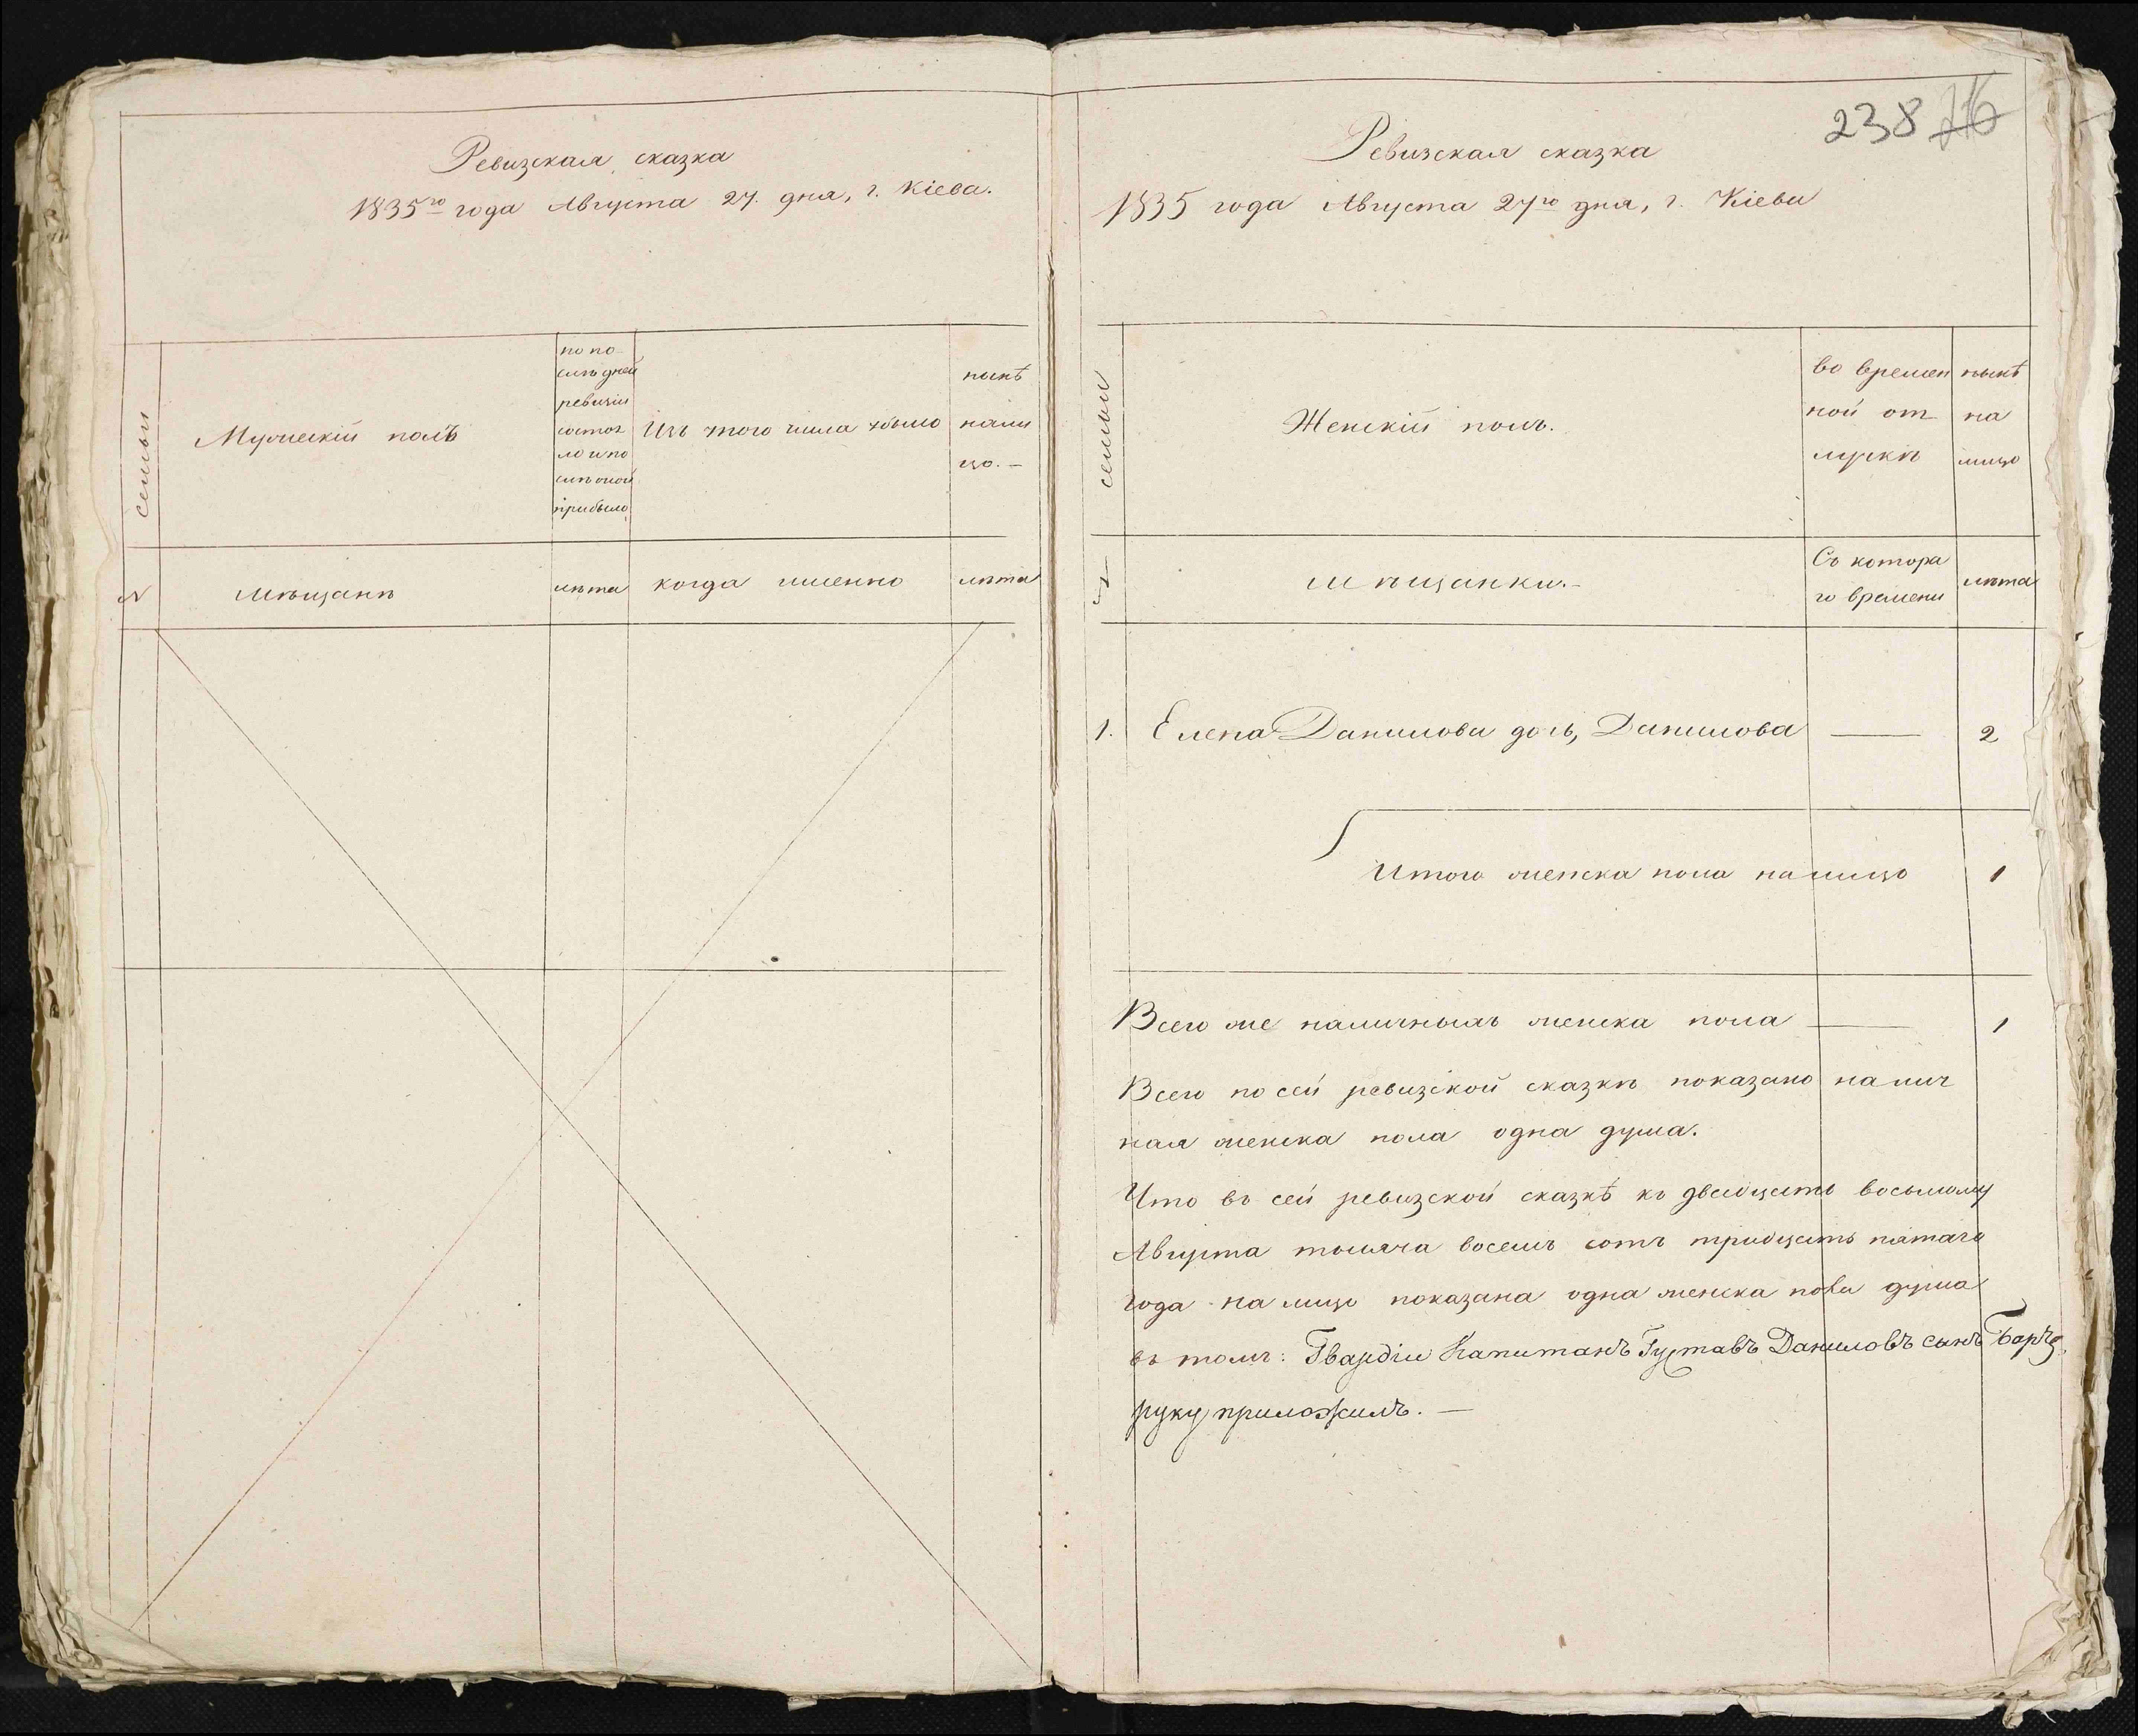 Ревизская сказка
1835го года Августа 27. дня, г. Кіева.
семьи
Мужескій полъ
по по-
слѣдней
ревизіи
состоя
ло и по
слѣ оной
прибыло
Изъ того числа выбыло
нынѣ
нали
цо. —
№
мѣщанѣ
лѣта
когда именно
лѣта
238 216
Ревизская сказка
1835 года Августа 27го дня, г. Кіева
семьи
Женскій полъ.
во времен
ной от
лучкѣ
нынѣ
на
лицо
№
мѣщанки. —
Съ котора
го времени
лѣта
1. Елена Данилова дочь, Данилова — 2
Итого женска пола налицо 1
Всего же наличныхъ женска пола — 1
Всего по сей ревизской сказкѣ показано налич
ная женска пола одна душа.
Что въ сей ревизской сказкѣ къ двадцать восьмому
Августа тысяча восемь сотъ тридцать пятаго
года на лицо показана одна женска пола душа
въ томъ: Гвардіи Капитанъ Густавъ Даниловъ сынъ
руку приложилъ. —